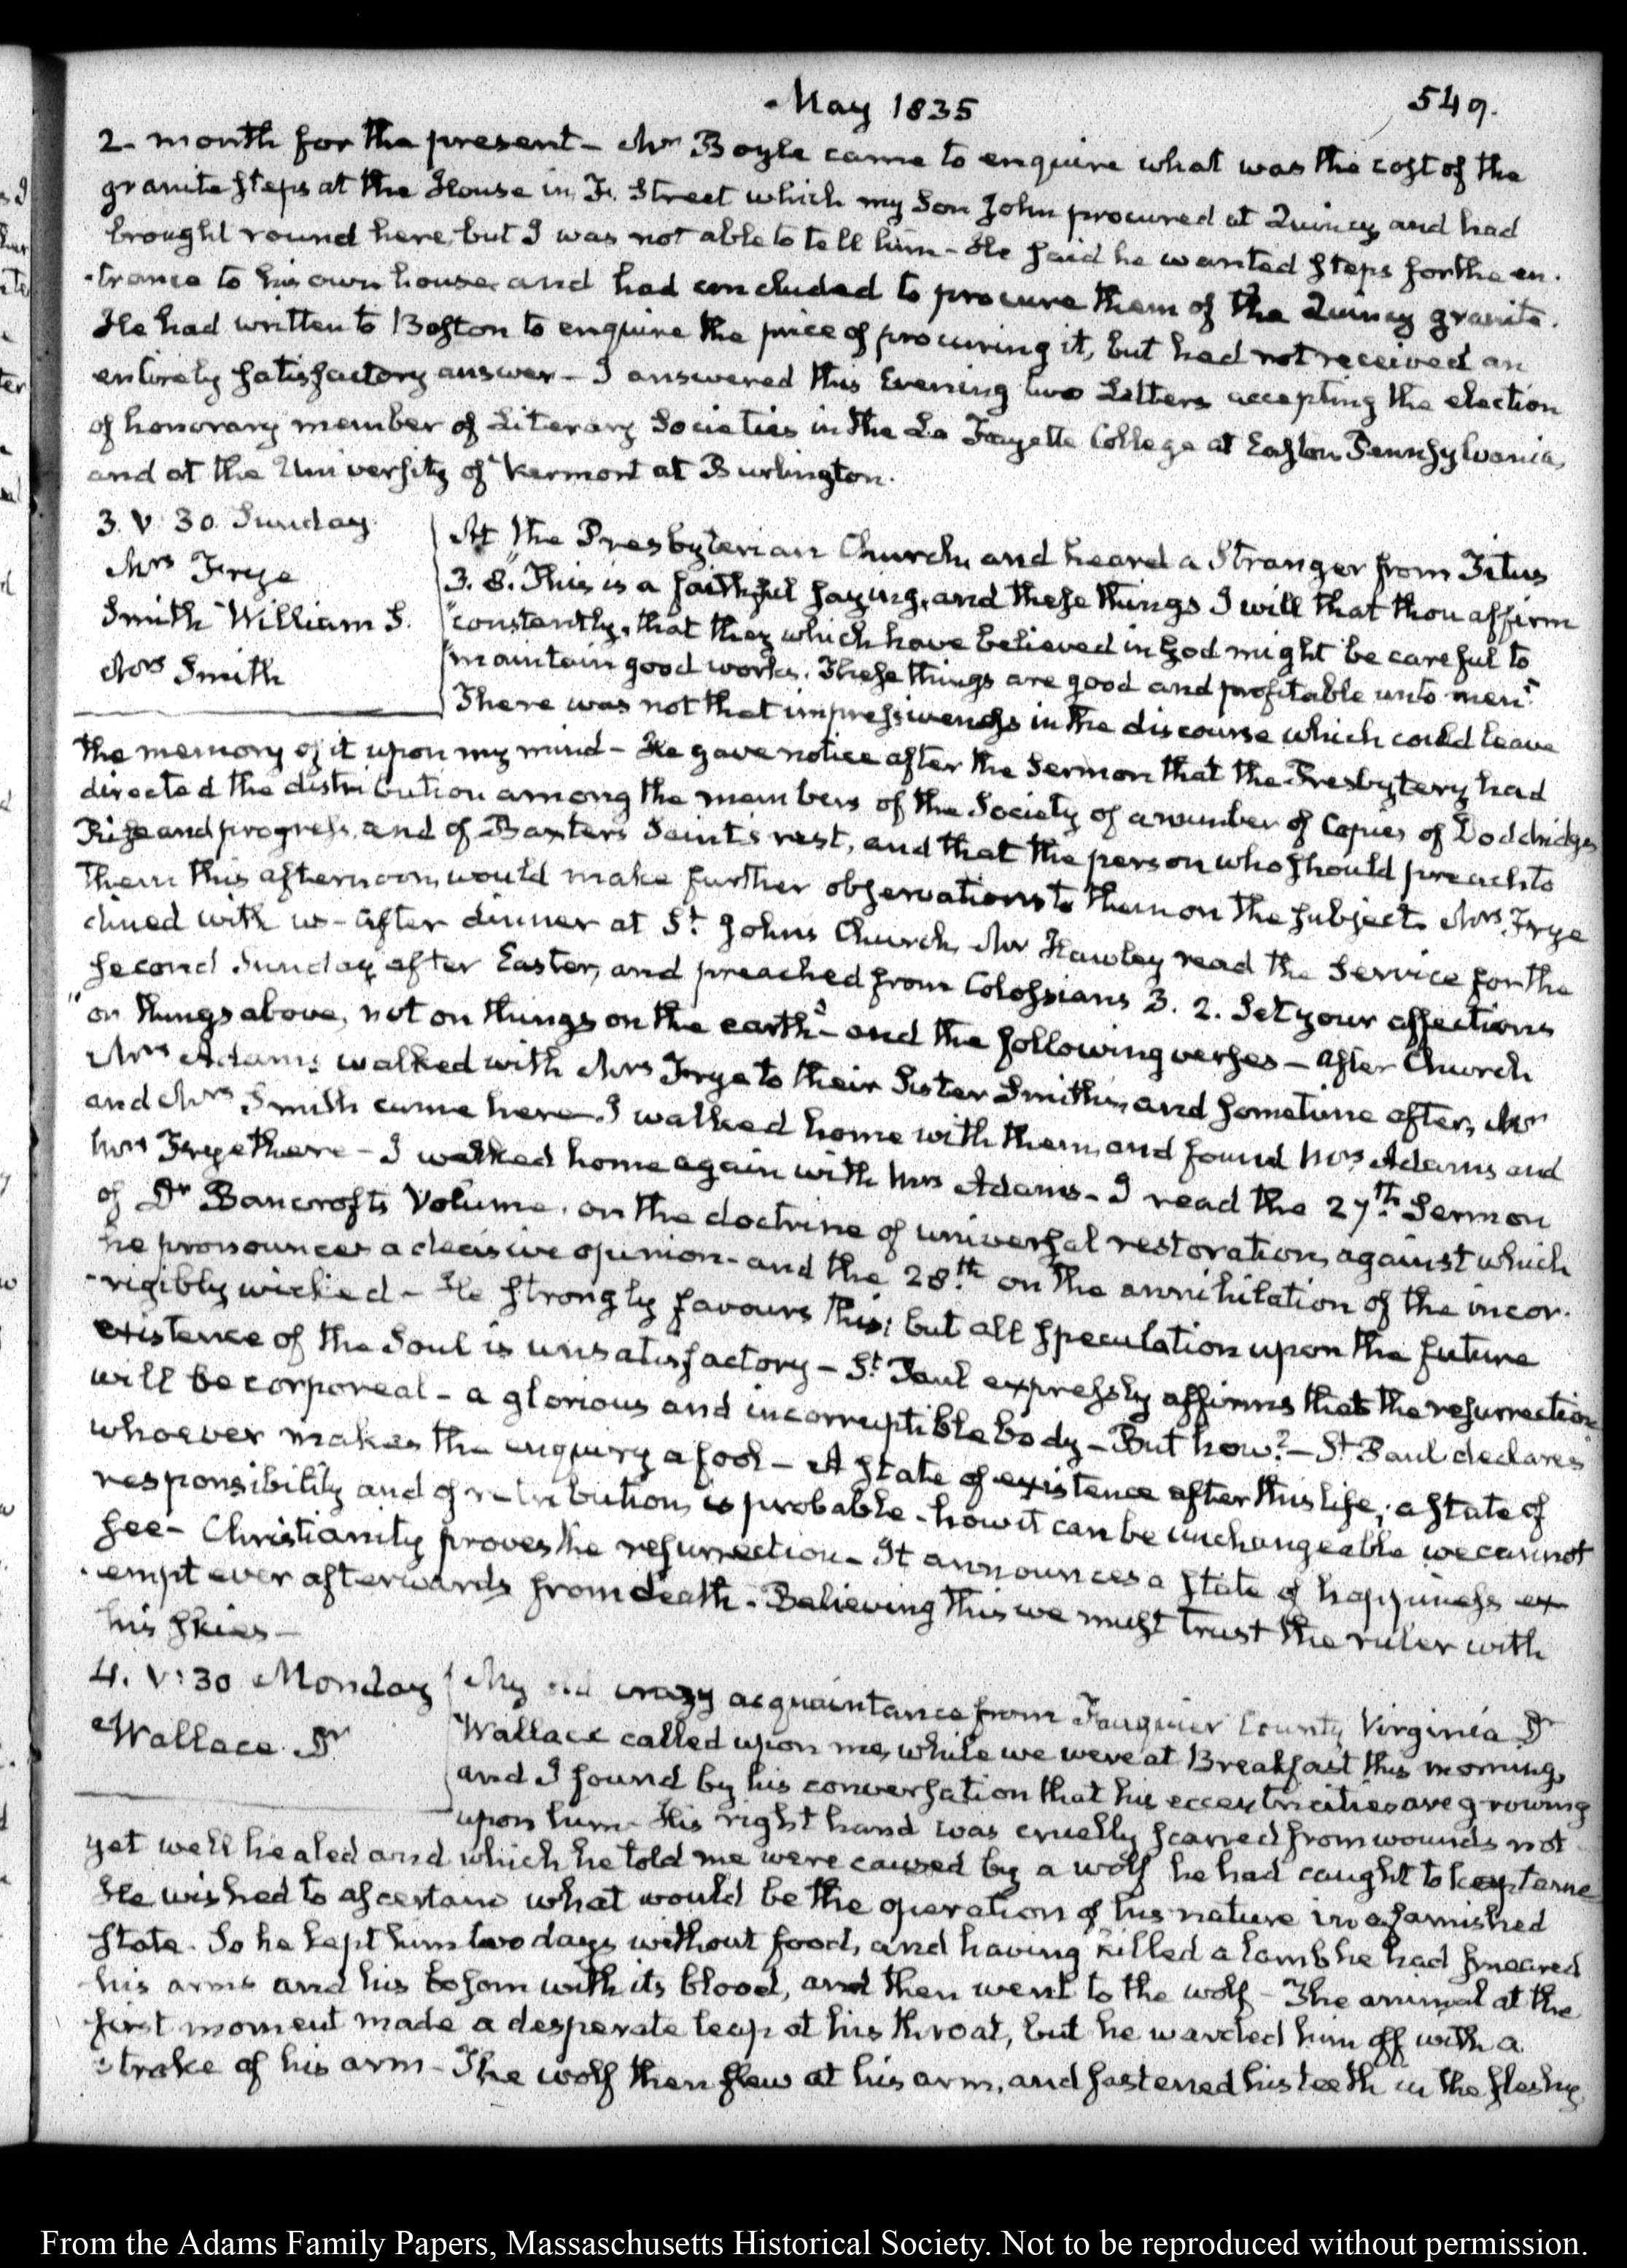 May 1835
549.
2. month for the present – Mr Boyle came to enquire what was the cost of the
granite steps at the House in F. Street which my Son John procured at Quincy and had
brought round here, but I was not able to tell him – He said he wanted steps for the en-
-trance to his own house, and had concluded to procure them of the Quincy granite.
He had written to Boston to enquire the price of procuring it, but had not received an
entirely satisfactory answer – I answered this Evening two Letters accepting the election
of honorary member of Literary Societies in the La Fayette College at Easton Pennsylvania,
and at the University of Vermont at Burlington.
3. V: 30. Sunday.
Mrs Frye
Smith William S.
Mrs Smith
At the Presbyterian Church, and heard a Stranger from Titus
3. 8. "This is a faithful saying, and these things I will that thou affirm
"constantly, that they which have believed in God might be careful to
"maintain good works. These things are good and profitable unto men."
There was not that impressiveness in the discourse which could leave
the memory of it upon my mind – He gave notice after the Sermon that the Presbytery had
directed the distribution among the members of the Society of a number of Copies of Doddridge's
Rise and progress, and of Baxter's Saint's rest, and that the person who should preach to
them this afternoon, would make further observations to them on the subject. Mrs Frye
dined with us – After dinner at St. Johns Church, Mr Hawley read the Service for the
second Sunday after Easter, and preached from Colossians 3. 2. Set your affections
"on things above, not on things on the earth" – and the following verses – After Church
Mrs Adams walked with Mrs Frye to their Sister Smith's, and sometime after, Mr
and Mrs Smith came here. I walked home with them, and found Mrs Adams and
Mrs Frye there – I walked home again with Mrs Adams – I read the 27th. Sermon
of Dr Bancroft's Volume, on the doctrine of universal restoration, against which
he pronounces a decisive opinion – and the 28th. on the annihilation of the incor-
-rigibly wicked – He strongly favours this; but all speculation upon the future
existence of the Soul is unsatisfactory – St. Paul expressly affirms that the resurrection
will be corporeal – a glorious and incorruptible body – But how? – St Paul declares
whoever makes the enquiry a fool – A state of existence after this life; a state of
responsibility and of retribution, is probable – how it can be unchangeable we cannot
see – Christianity proves the resurrection – It announces a state of happiness ex-
-empt ever afterwards from death. Believing this we must trust the ruler with
his skies –
4. V: 30 Monday
Wallace Dr
My old crazy acquaintance from Fauquier County, Virginia Dr
Wallace called upon me, while we were at Breakfast this morning,
and I found by his conversation that his eccentricities are growing
upon him – His right hand was cruelly scarred from wounds not
yet well healed and which he told me were caused by a wolf he had caught to keep tame
He wished to ascertain what would be the operation of his nature in a famished
state. So he kept him two days without food, and having killed a lamb he had smeared
his arms and his bosom with its blood, and then went to the wolf – The animal at the
first moment made a desperate leap at his throat, but he warded him off with a
stroke of his arm – The wolf then flew at his arm, and fastened his teeth in the fleshy
From the Adams Family Papers, Massachusetts Historical Society. Not to be reproduced without permission.